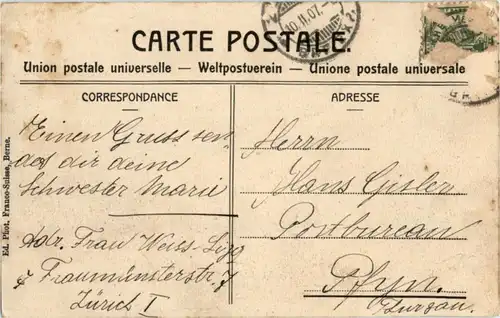 CARTE POSTALE.
Union postale universelle — Weltpostverein — Unione postale universale
CORRESPONDANCE
Einen Gruss sen-
det dir deine
Schwester Marie
Adr. Frau Weiss-
Fraumünsterstr. 7
Zürich I
ADRESSE
Herrn
Hans Gisler
Postbureau
Pfyn.
Turgau.
Ed. Phot. Franco-Suisse, Berne.
10.II.07.